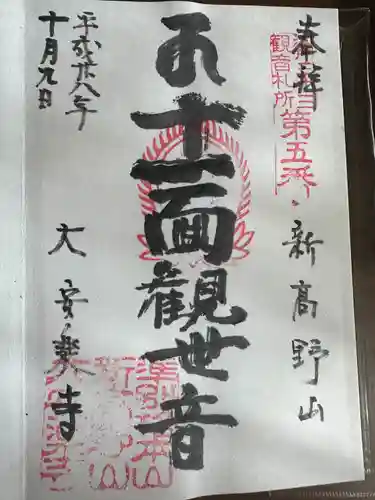 奉拝
観音札所
第五番
新高野山
十一面観世音
平成廿八年
十月九日
大安楽寺